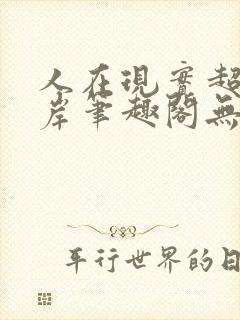 人在現實超
岸筆趣閣無
平行世界的日